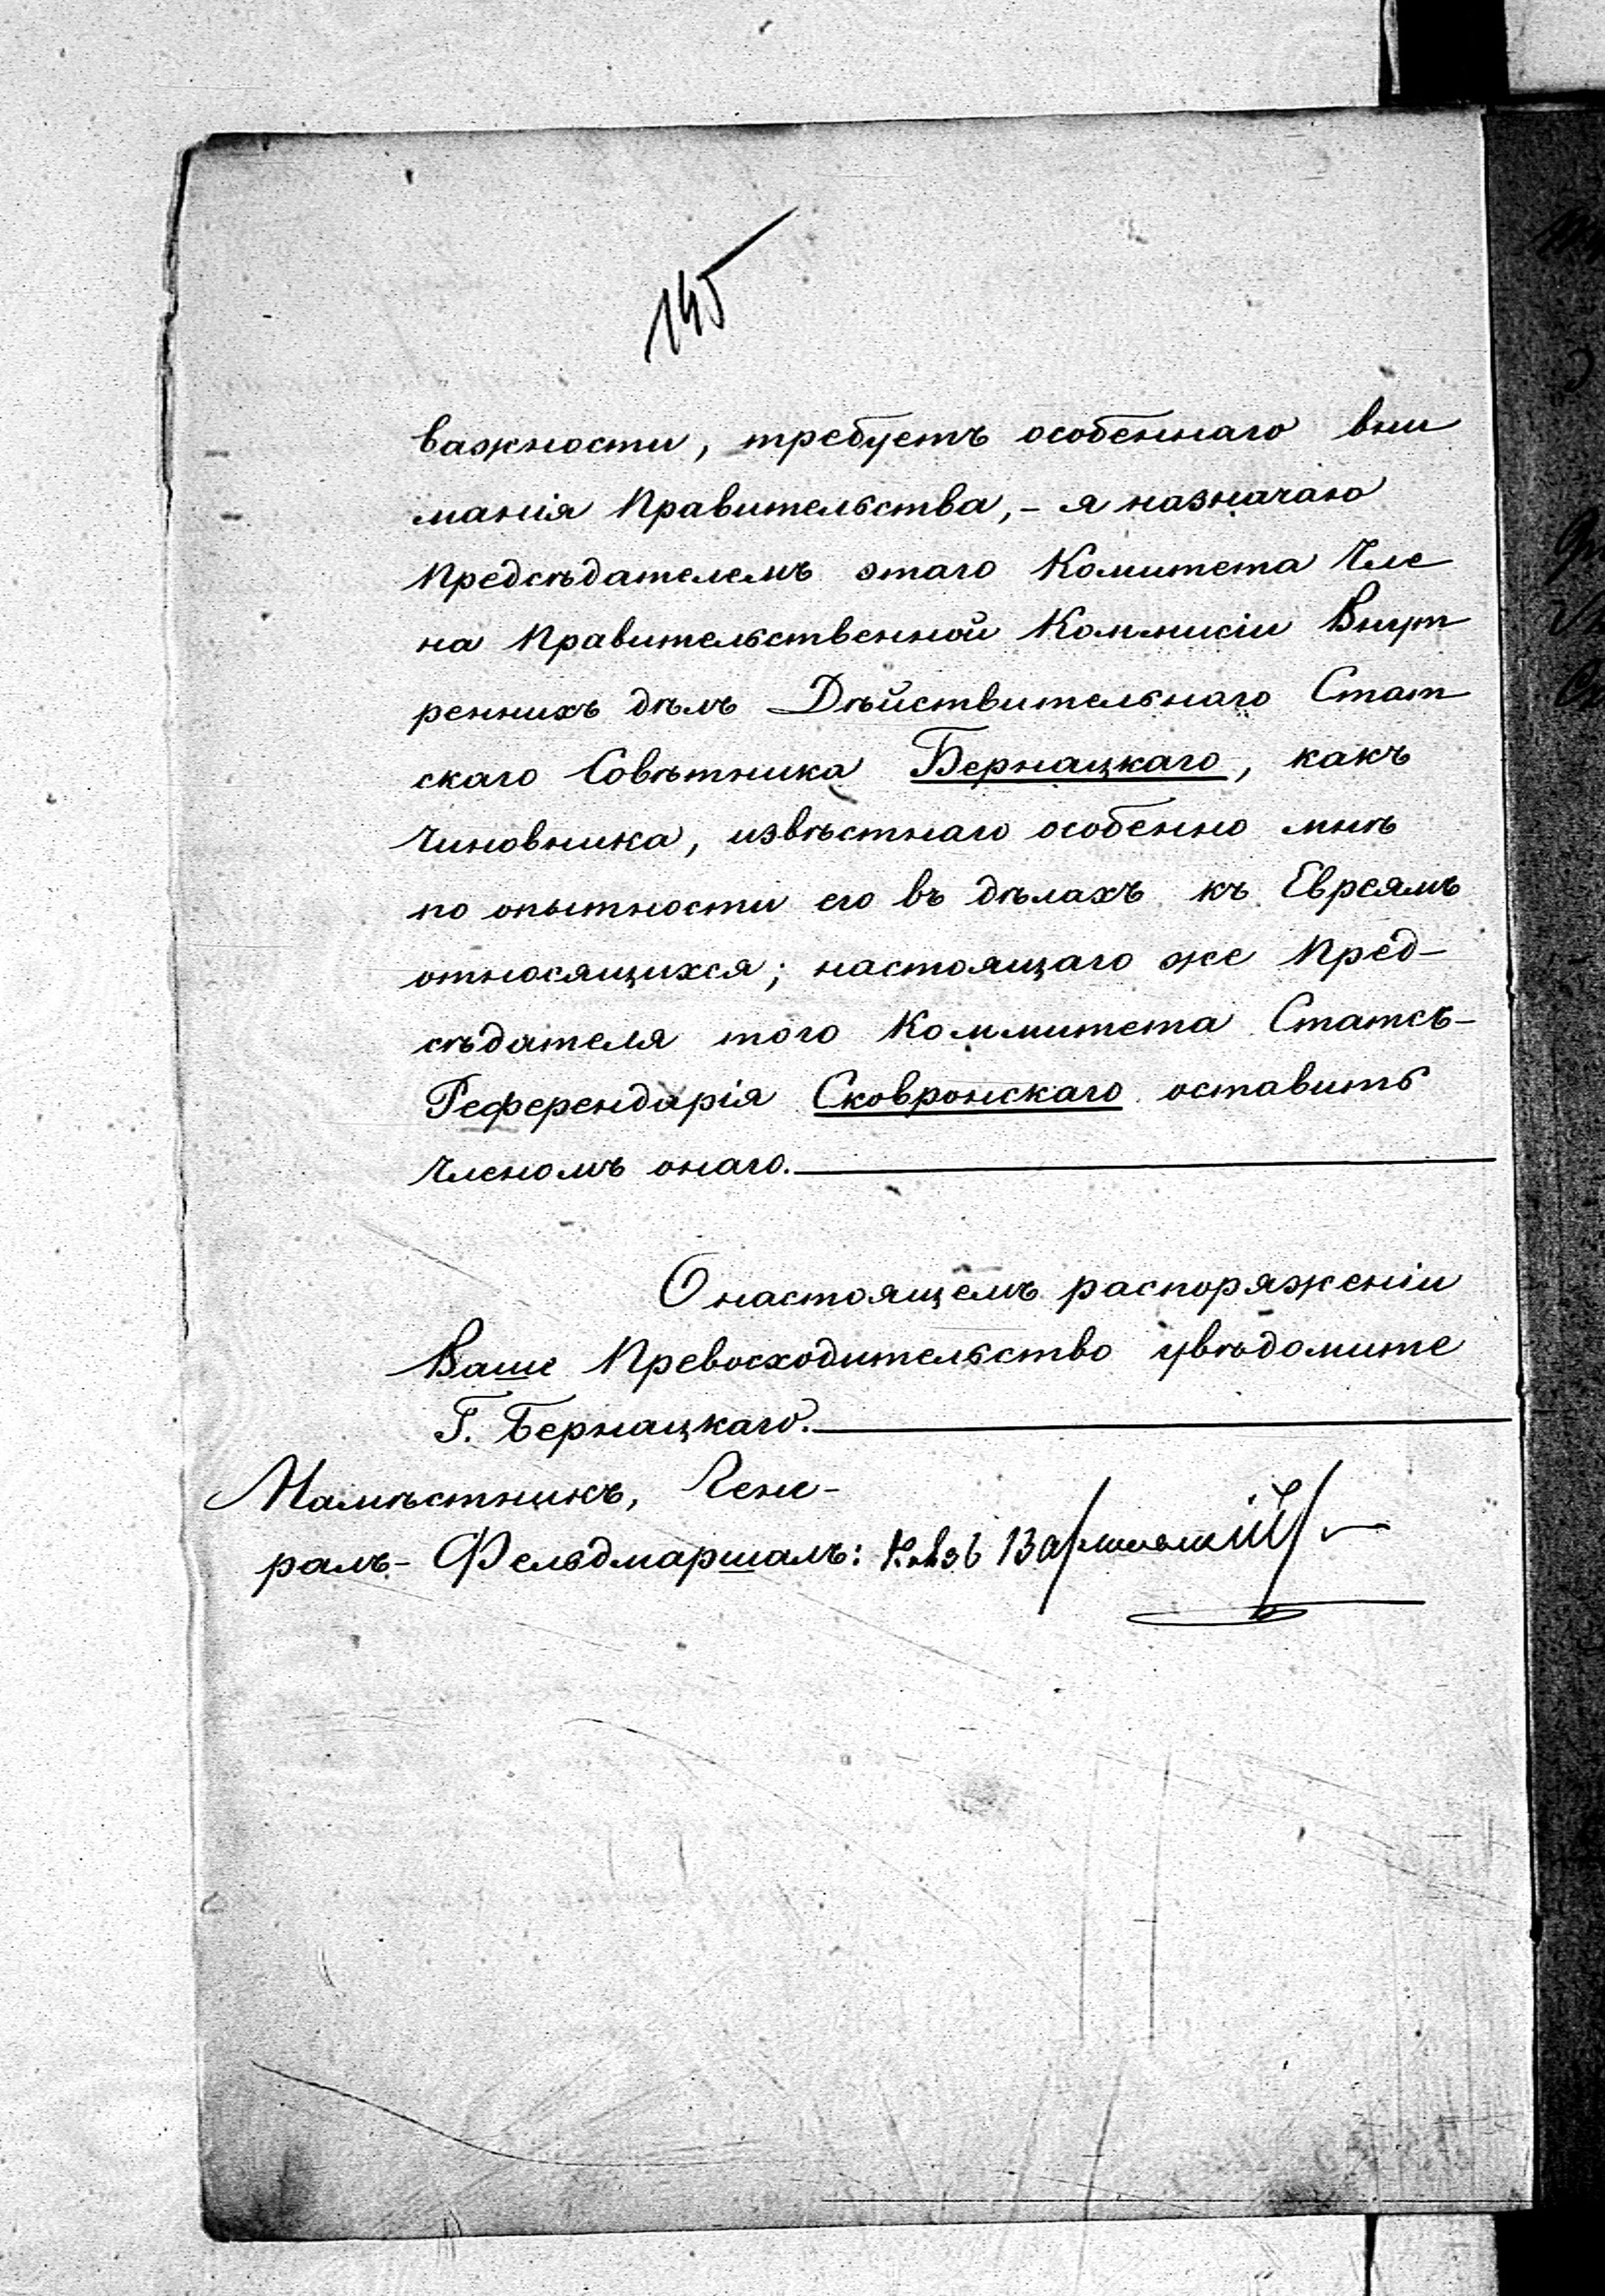 145
важности, требуетъ особеннаго вни
манія Правительства,- я назначаю
Предсѣдателемъ этаго Комитета Чле
на Правительственной Коммисіи Внут
реннихъ дѣлъ Дѣйствительнаго Стат
скаго Совѣтника Бернацкаго, какъ
Чиновника, извѣстнаго особенно мнѣ
по опытности его въ дѣлахъ къ Евреямъ
относящихся; настоящаго же Пред-
сѣдателя того Коммитета Статсъ-
Референдарія Сковронскаго оставить
Членомъ онаго.
О настоящемъ распоряженіи
Ваше Превосходительство увѣдомите
Г. Бернацкаго.
Намѣстникъ, Гене-
ралъ-Фельдмаршалъ: Князь Варшавскій